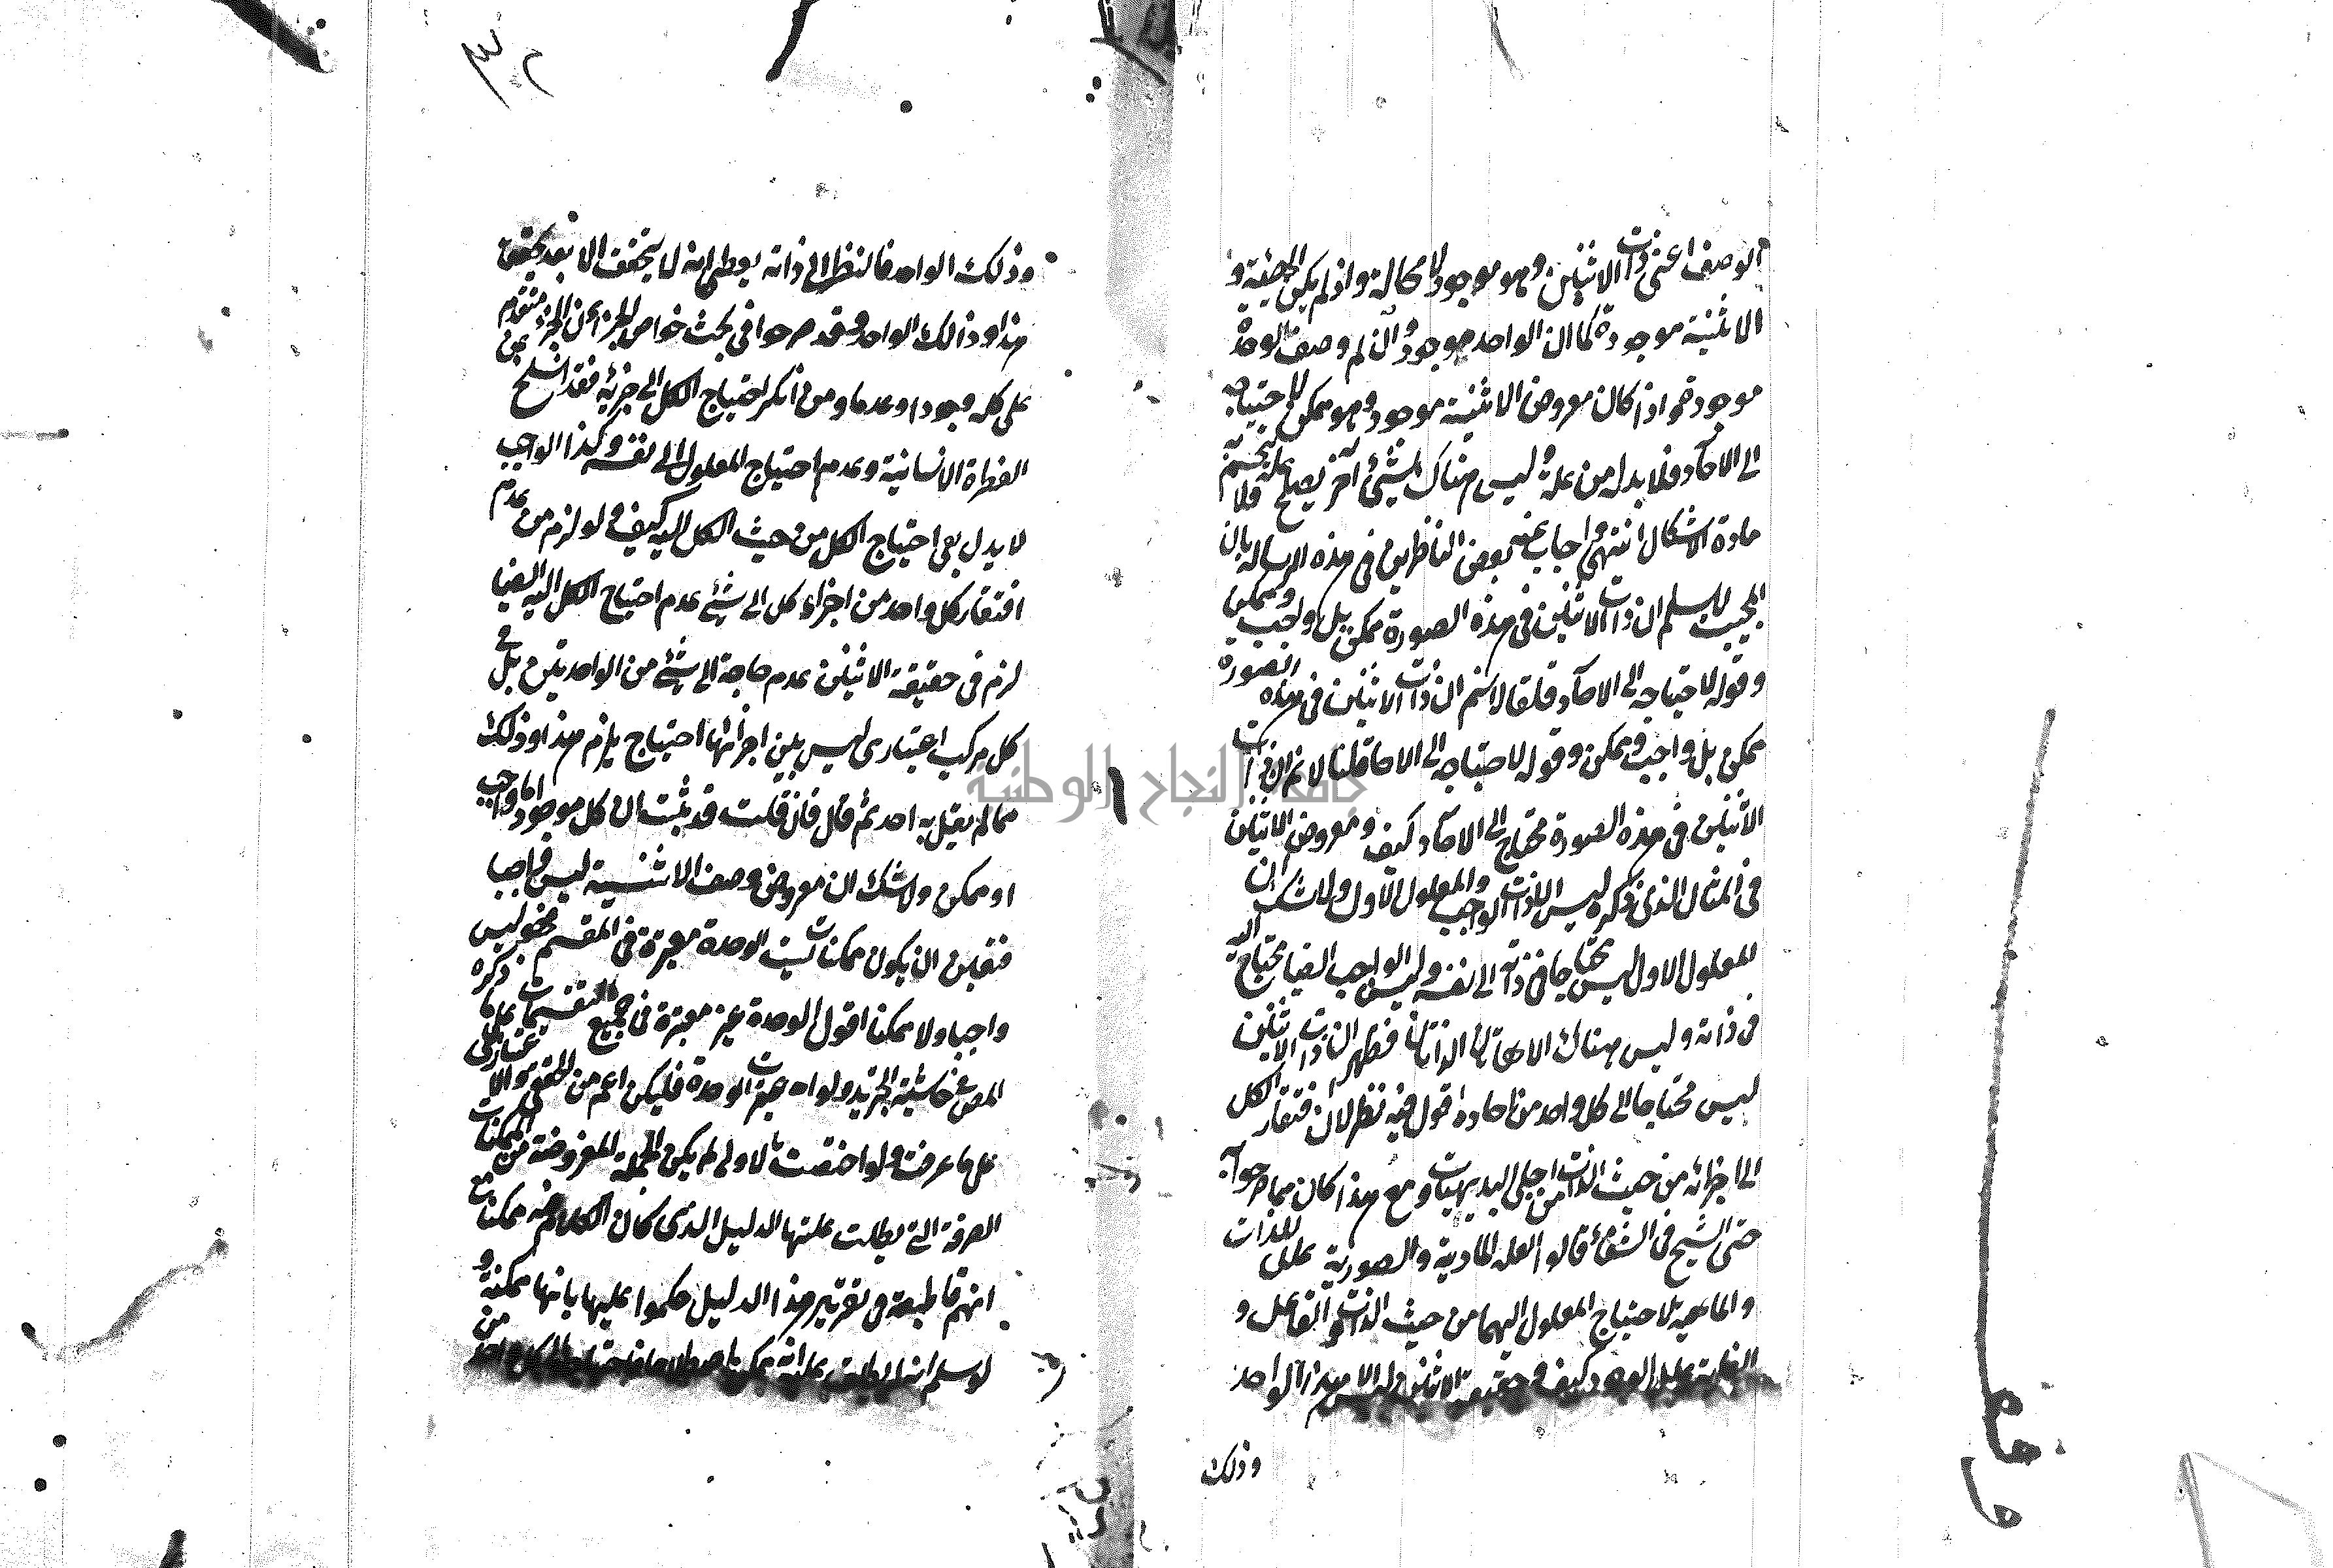 الوصف اعني ذات الاثنين وهو موجود لا محالة واذ لم يكن الحيثية و
الاثنينية موجودة كما ان الواحد موجود وان لم وصف الوحدة
موجودة واذا كان معروض الاثنينية موجود وهو ممكن لاحتياجه
الى الآحاد فلا بد له من علة وليس هناك شيئ آخر يصلح علة ولا
مادة الاشكال انتهى واجاب عنه بعض الناظرين في هذه الرسالة بان
المجيب لا يسلم ان ذات الاثنين في هذه الصورة ممكن بل واجب وممكن
وقوله لاحتياجه الى الآحاد قلنا لا نسلم ان ذات الاثنين في هذه الصورة
ممكن بل واجب وممكن وقوله لاحتياجه الى الآحاد قلنا لا نم ان ذات
الاثنين في هذه الصورة محتاج الى الآحاد كيف ومعروض الاثنين
في المثال الذي ذكره ليس الا ذات الواجب والمعلول الاول ولا شك ان
المعلول الاول ليس محتاجا في ذاته الى نفسه وليس الواجب ايضا محتاج اليه
في ذاته وليس هناك الا هاتان الذاتان فظهر ان ذات الاثنين
ليس محتاجا الى كل واحد من آحاده اقول فيه نظر لان افتقار الكل
الى اجزائه من حيث الذات من اجلى البديهيات ومع هذا كان مما صرحوا به
حتى الشيخ في الشفاء قالوا العلة المادية والصورية علل للذات
والماهية لاحتياج المعلول اليهما من حيث الذات والفاعل و
الغاية علل الوجود كيف وحقيقة الاثنين ليس الا هذا الواحد
وذلك
وذلك الواحد فالنظر الى ذاته يعطي انه لا يتحقق الا بعد تحقق
هذا وذلك الواحد وقد صرحوا في بحث خواص الجزء بان الجزء متقدم
على كله وجودا وعدما ومن انكر احتياج الكل الى جزئه فقد انسلخ عن
الفطرة الانسانية وعدم احتياج المعلول الى نفسه وكذا الواجب
لا يدل بعدم احتياج الكل من حيث الكل اليه كيف ولو لزم من عدم
افتقار كل واحد من اجزاء كل الى شيئ عدم احتياج الكل اليه ايضا
لزم في حقيقة الاثنين عدم حاجة الى شيئ من الواحدين بل في
كل مركب اعتباري ليس بين اجزائها احتياج يلزم هذا وذلك
مما لم يقل به احد ثم قال فان قلت قد ثبت ان كل موجود اما واجب
او ممكن ولا شك ان معروض وصف الاثنينية ليس واجبا
فتعين ان يكون ممكنا قلت الوحدة معتبرة في المقسم فهو ليس
واجبا ولا ممكنا اقول الوحدة غير معتبرة في جميع التقسيمات على ما ذكره
المص في حاشية التجريد ولو اعتبرت الوحدة فليكن اعم من الحقيقي والاعتباري
على ما عرفت ولو اختصت بالاولى لم يكن الجملة المفروضة من الممكنات
الصرفة التي يطلب علتها الدليل الذي كان الكلام فيه ممكنا مع
انهم قاطبة في تقرير هذا الدليل حكموا عليها بانها ممكنة و
لو سلم